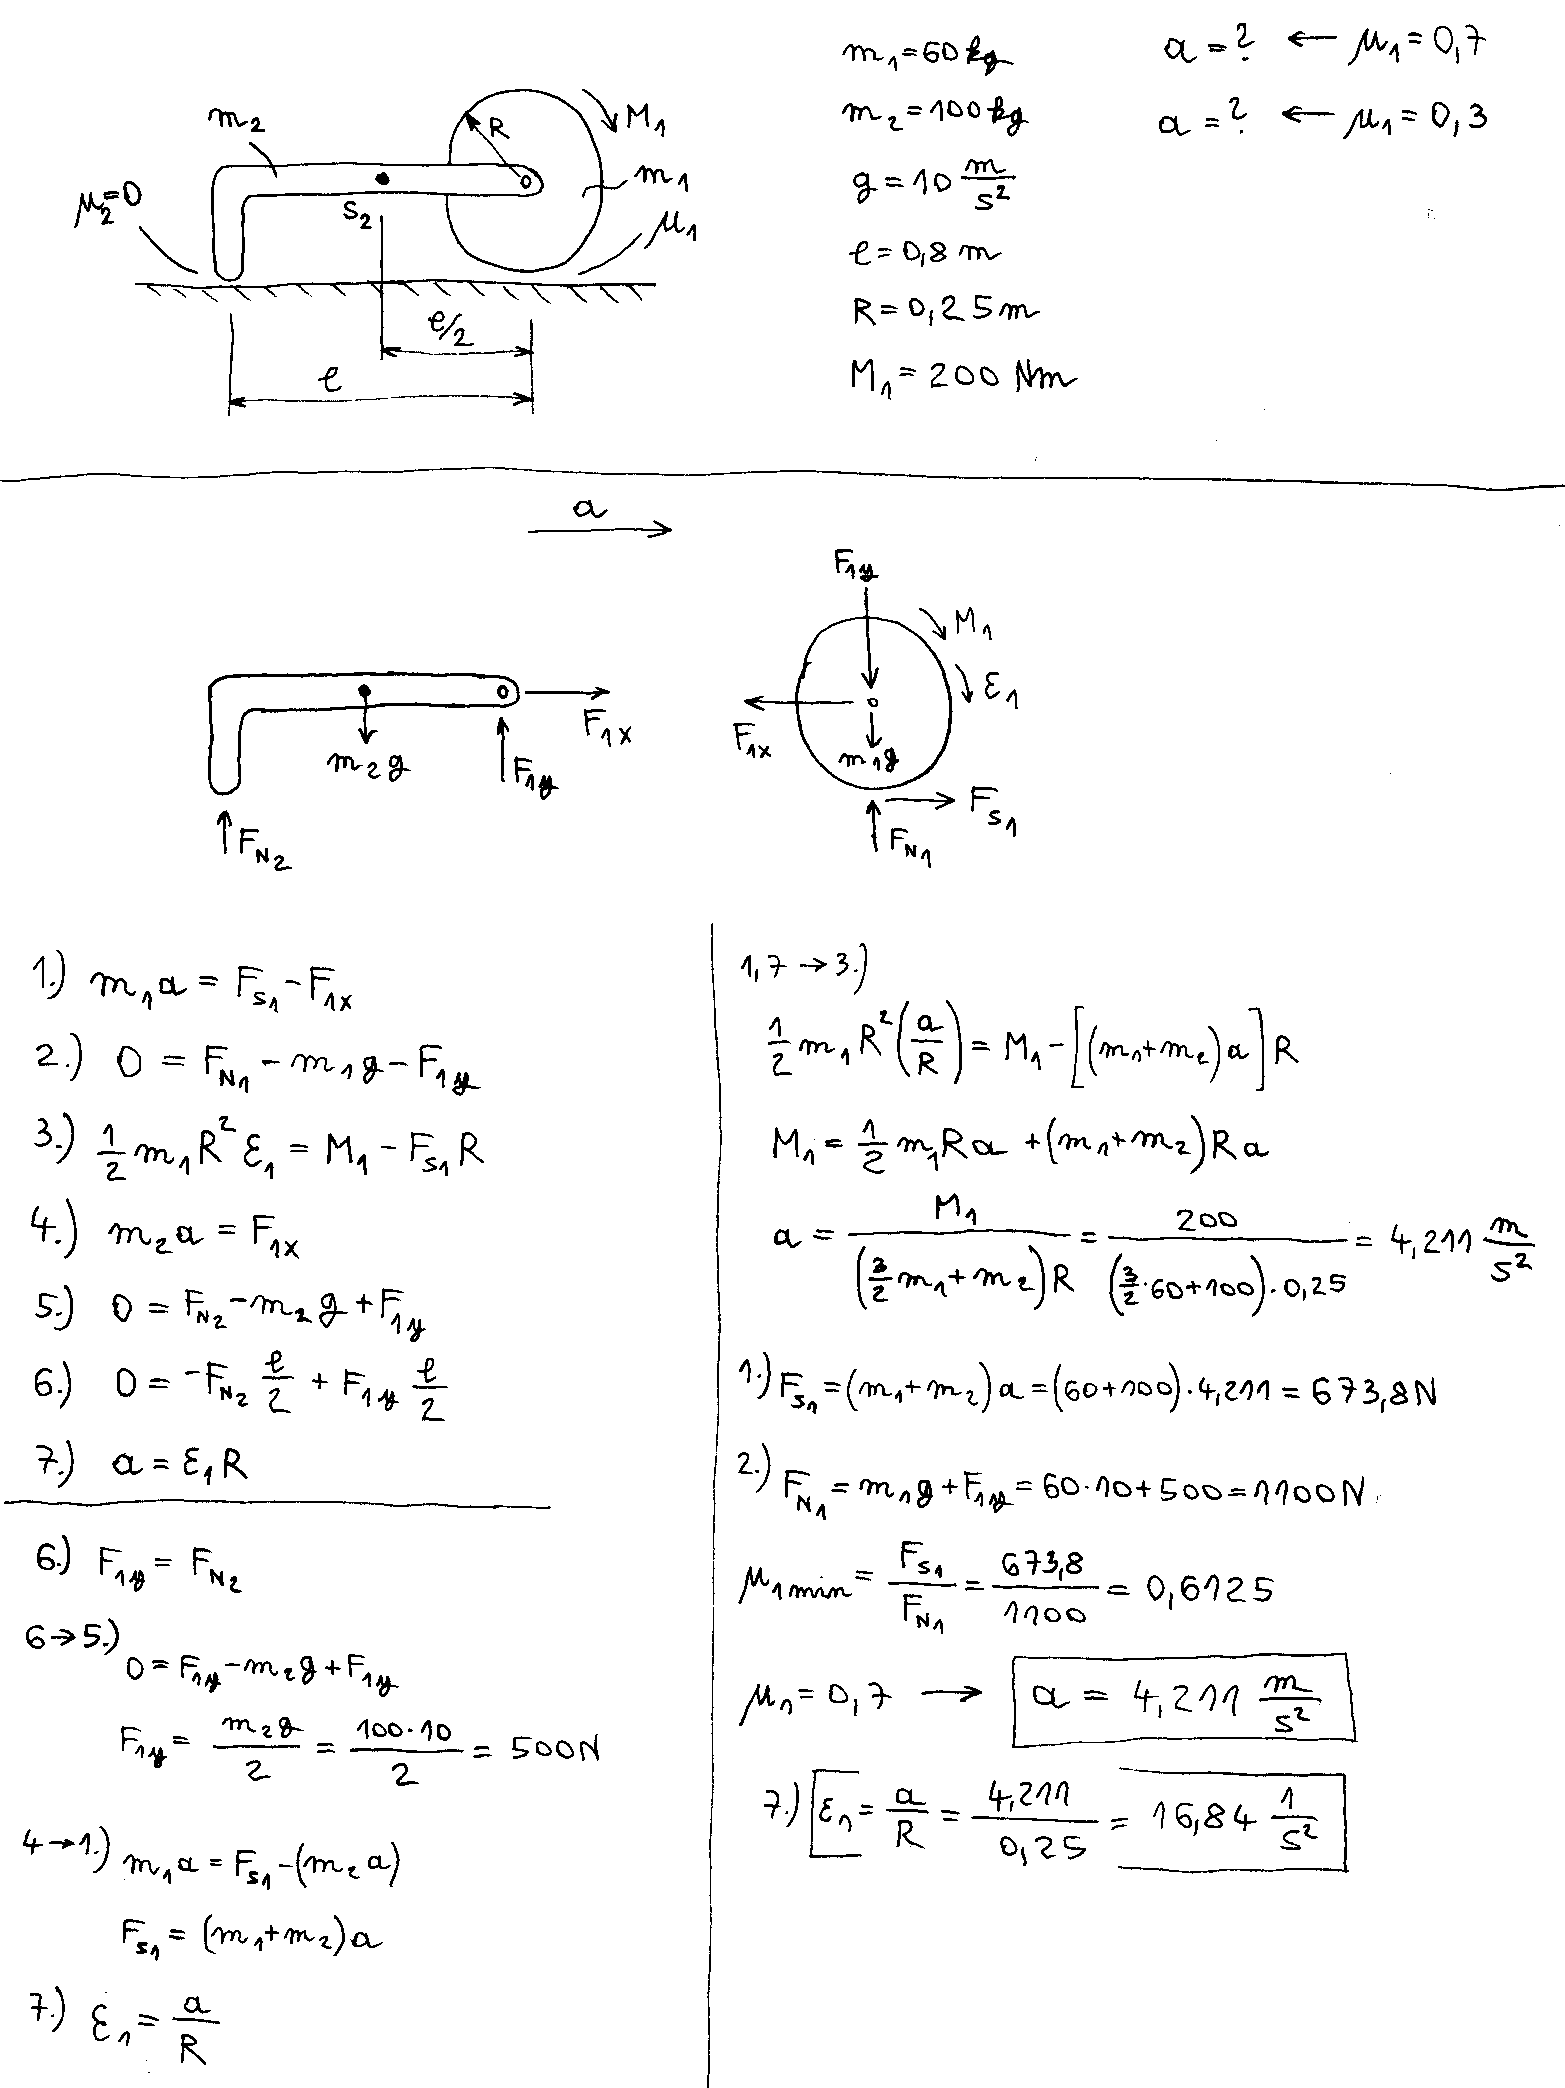 m₁=60 kg
a = ? ← μ₁ = 0,7
m₂ = 100 kg
a = ? ← μ₁ = 0,3
g = 10 m/s²
l = 0,8 m
R = 0,25 m
M₁ = 200 Nm
m₂
R
M₁
m₁
μ₂=0
S₂
μ₁
l/2
l
a
F₁y
M₁
ε₁
F₁x
F₁x
m₂g
F₁y
m₁g
F_S1
F_N2
F_N1
1.) m₁a = F_S1 - F₁x
2.) 0 = F_N1 - m₁g - F₁y
3.) 1/2 m₁R²ε₁ = M₁ - F_S1 R
4.) m₂a = F₁x
5.) 0 = F_N2 - m₂g + F₁y
6.) 0 = -F_N2 l/2 + F₁y l/2
7.) a = ε₁R
6.) F₁y = F_N2
6→5.)
0 = F₁y - m₂g + F₁y
F₁y = m₂g/2 = 100·10/2 = 500N
4→1.) m₁a = F_S1 - (m₂a)
F_S1 = (m₁+m₂)a
7.) ε₁ = a/R
1,7→3.)
1/2 m₁R²(a/R) = M₁ - [(m₁+m₂)a]R
M₁ = 1/2 m₁Ra + (m₁+m₂)Ra
a = M₁/((3/2 m₁+m₂)R) = 200/((3/2·60+100)·0,25) = 4,211 m/s²
1.) F_S1 = (m₁+m₂)a = (60+100)·4,211 = 673,8N
2.) F_N1 = m₁g + F₁y = 60·10+500 = 1100N
μ₁min = F_S1/F_N1 = 673,8/1100 = 0,6125
μ₁ = 0,7 → a = 4,211 m/s²
7.) ε₁ = a/R = 4,211/0,25 = 16,84 1/s²